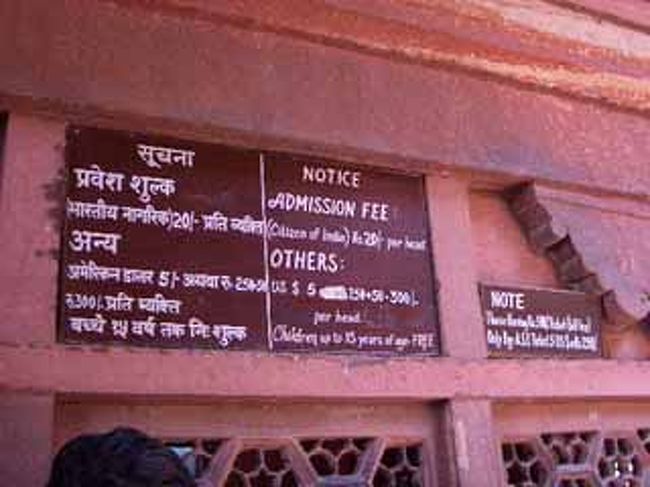 सूचना
प्रवेश शुल्क
(भारतीय नागरिक) 20/- प्रति व्यक्ति
अन्य
अमेरिकन डालर 5/- अथवा रु. 250+50
रु.300/- प्रति व्यक्ति
बच्चे १५ वर्ष तक निः शुल्क
NOTICE
ADMISSION FEE:
(Citizen of India) Rs. 20/- per head
OTHERS:
U.S $ 5 250+50=300/-
per head
Children up to 15 years of age FREE
NOTE
Only